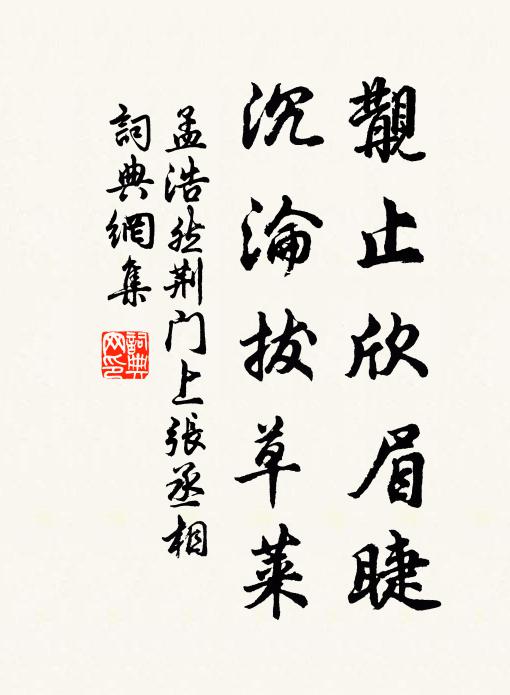 覯止欣眉睫
沉淪拔草萊
孟浩然荆门上張丞相
詞典網集
詞典网印